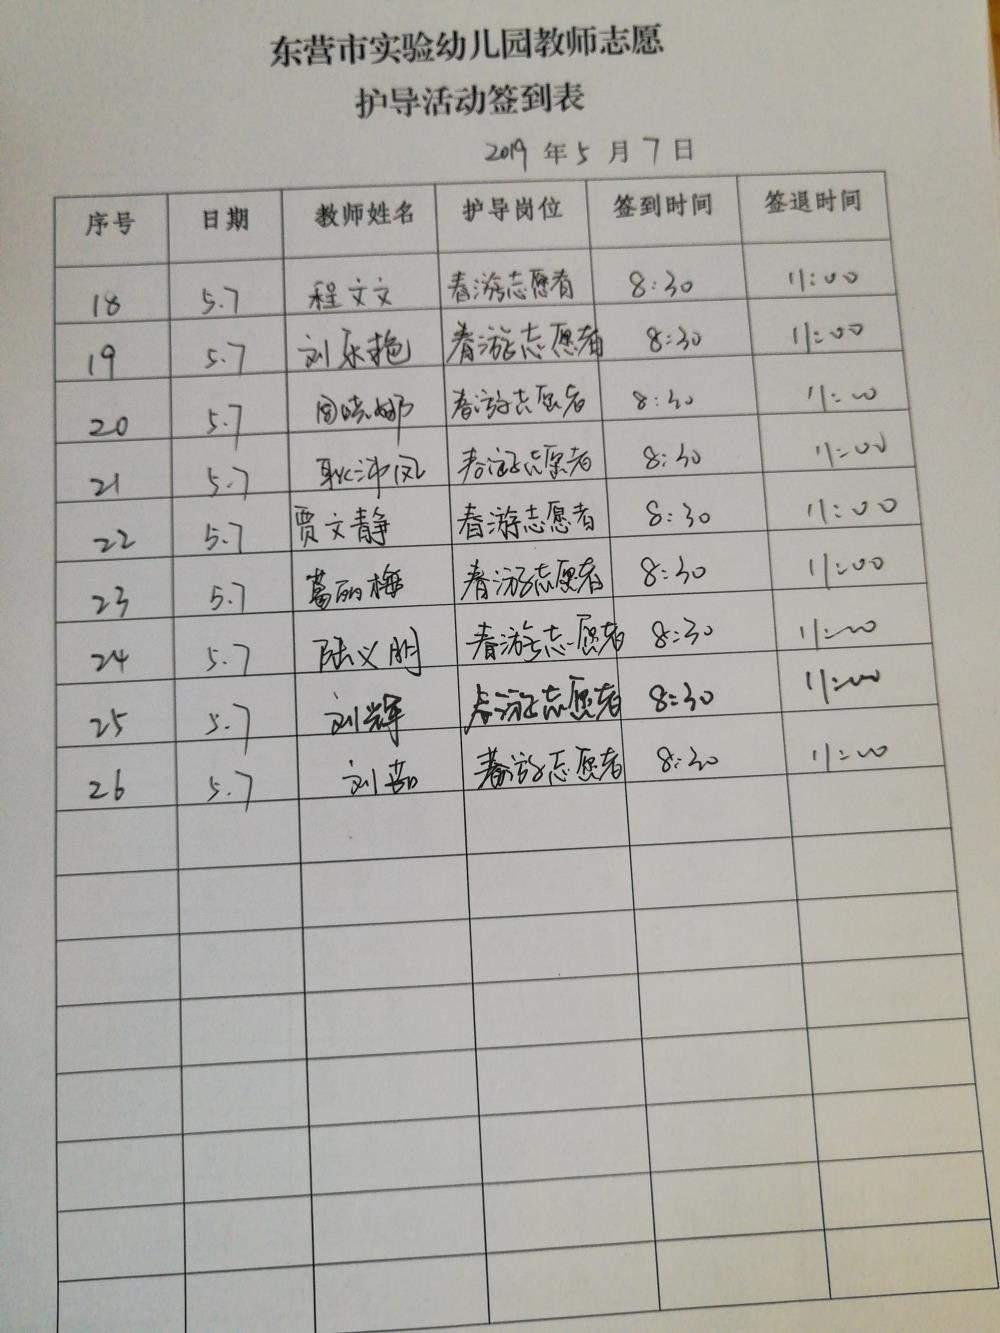 东营市实验幼儿园教师志愿
护导活动签到表
2019 年 5 月 7 日
序号 日期 教师姓名 护导岗位 签到时间 签退时间
18 5.7 程文文 春游志愿者 8:30 11:00
19 5.7 刘乐艳 春游志愿者 8:30 11:00
20 5.7 周晓娜 春游志愿者 8:30 11:00
21 5.7 春游志愿者 8:30 11:00
22 5.7 贾文静 春游志愿者 8:30 11:00
23 5.7 葛丽梅 春游志愿者 8:30 11:00
24 5.7 陆义明 春游志愿者 8:30 11:00
25 5.7 刘辉 春游志愿者 8:30 11:00
26 5.7 刘茹 春游志愿者 8:30 11:00